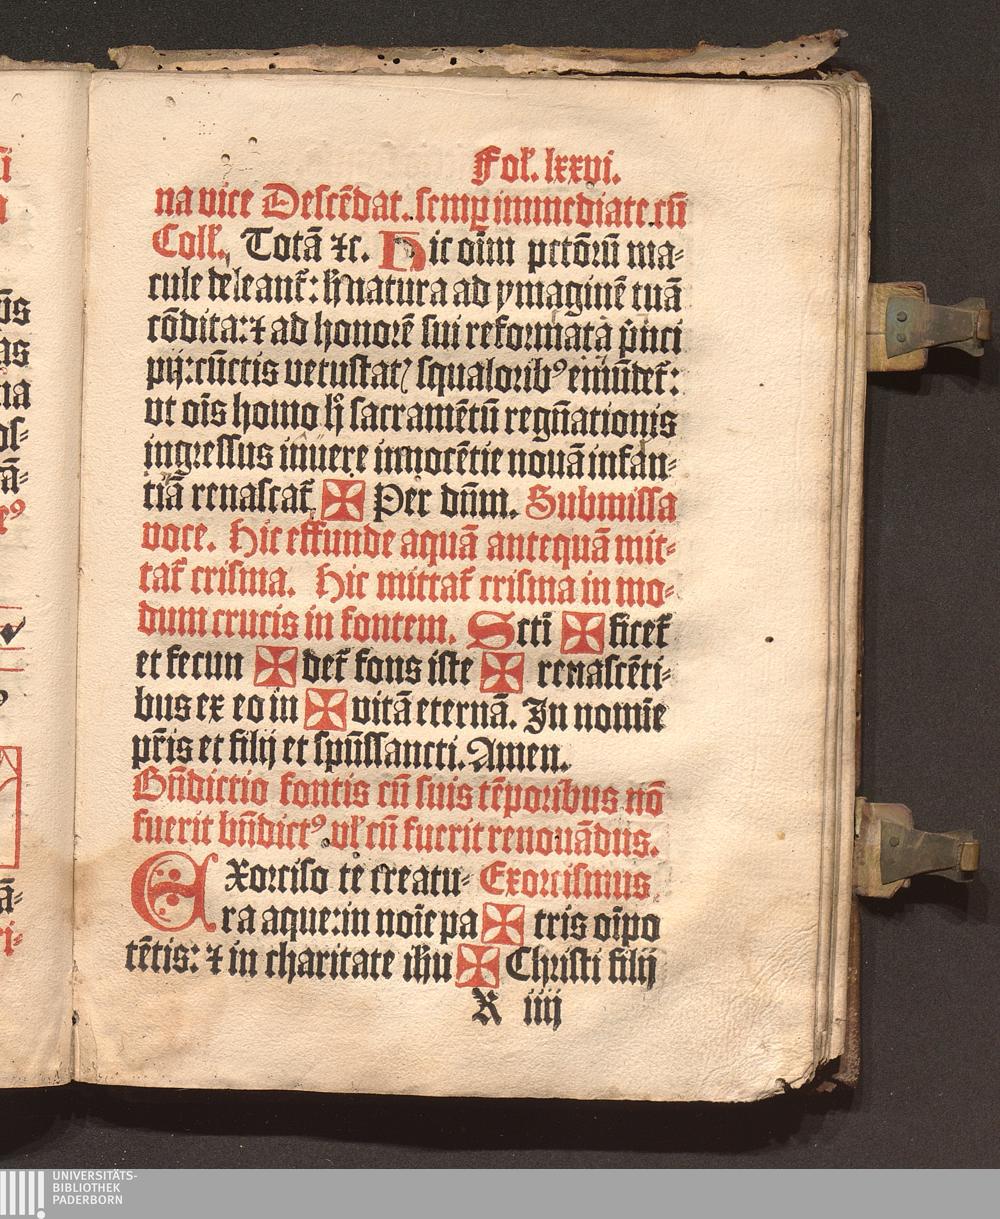 Fol. lxxvi.
na vice Descēdat. semꝑ immediate. cū
Coll. Totā ⁊c. Hic oīm pctōrū ma-
cule deleant᷑: hͥ natura ad ymaginē tuā
cōdita: ⁊ ad honorē sui reformata pͥnci
pij: cūctis vetustatꝭ squaloribꝰ emūdet᷑:
vt oīs homo hͦ sacramētū regn̄ationis
ingressus inuere innocētie nouā infan-
tiā renascat᷑ ✠ Per dn̄m. Submissa
voce. Hic effunde aquā antequā mit-
tat᷑ crisma. Hic mittat᷑ crisma in mo-
dum crucis in fontem. Scti ✠ ficet᷑
et fecun ✠ det᷑ fons iste ✠ renascēti-
bus ex eo in ✠ vitā eternā. In nomīe
pr̄is et filij et spūssancti. Amen.
Bn̄dictio fontis cū suis tēporibus nō
fuerit bn̄dictꝰ vl̓ cū fuerit renouādus.
EXorciso te creatu- Exorcismus
ra aque: in noīe pa ✠ tris oīpo
tētis: ⁊ in charitate ih̄u ✠ Christi filij
K iiij
UNIVERSITÄTS-
BIBLIOTHEK
PADERBORN